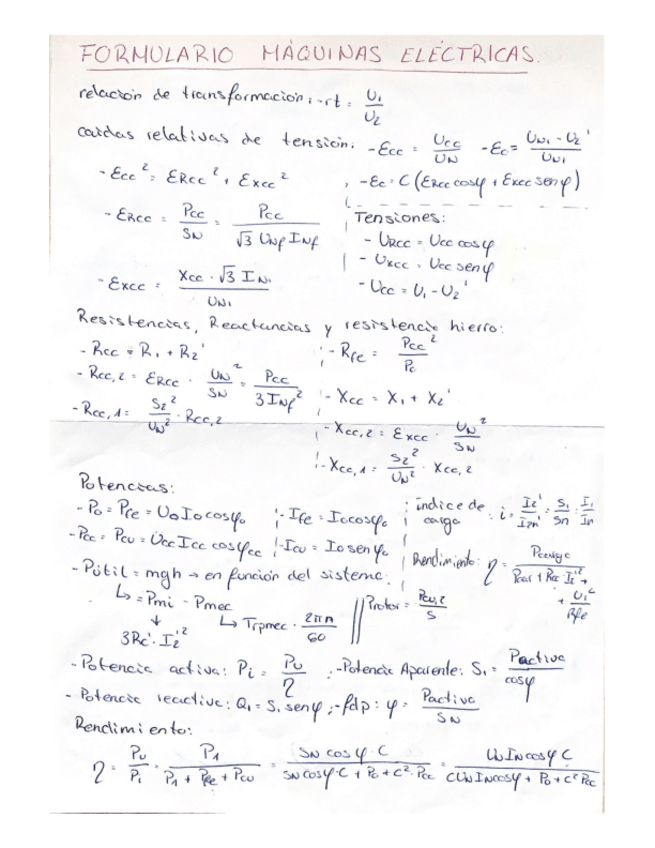 FORMULARIO MÁQUINAS ELÉCTRICAS.
relación de transformación: -rt = U1/U2
caídas relativas de tensión: -Ecc = Ucc/UN -Ec = (UN1 - U2')/UN1
-Ecc² = ERcc² + Excc² -Ec = C (ERcc cosφ + Excc senφ)
-ERcc = Pcc/SN = Pcc/(√3 UNf INf)
-Excc = (Xcc · √3 IN1)/UN1
Tensiones:
-URcc = Ucc cosφ
-Uxcc = Ucc senφ
-Ucc = U1 - U2'
Resistencias, Reactancias y resistencia hierro:
-Rcc = R1 + R2' -Rfe = Pcc²/Pc
-Rcc,2 = ERcc · UN²/SN = Pcc/(3 INf²) -Xcc = X1 + X2'
-Rcc,1 = S2²/UN² · Rcc,2 -Xcc,2 = Excc · UN²/SN
-Xcc,1 = S2²/UN² · Xcc,2
Potencias:
-Po = Pfe = Uo Io cosφo -Ife = Io cosφo
-Pcc = Pcu = Ucc Icc cosφcc -Icu = Io senφo
índice de carga: i = I2'/I2n' = S1/Sn = I1/In
Rendimiento: η =
-Pútil = mgh → en función del sistema.
↳ = Pmi - Pmec
↓
3Rc' · I2'² ↳ Trpmec · 2πn/60
Protor = Pcu,2/S
-Potencia activa: Pi = Pu/η -Potencia Aparente: S1 = Pactiva/cosφ
-Potencia reactiva: Q1 = S1 senφ -fdp: φ = Pactiva/SN
Rendimiento:
η = Pu/Pi = P1/(P1 + Pfe + Pcu) = (SN cosφ · C)/(SN cosφ · C + Po + C² · Pcc) = (UN IN cosφ C)/(C UN IN cosφ + Po + C² Pcc)